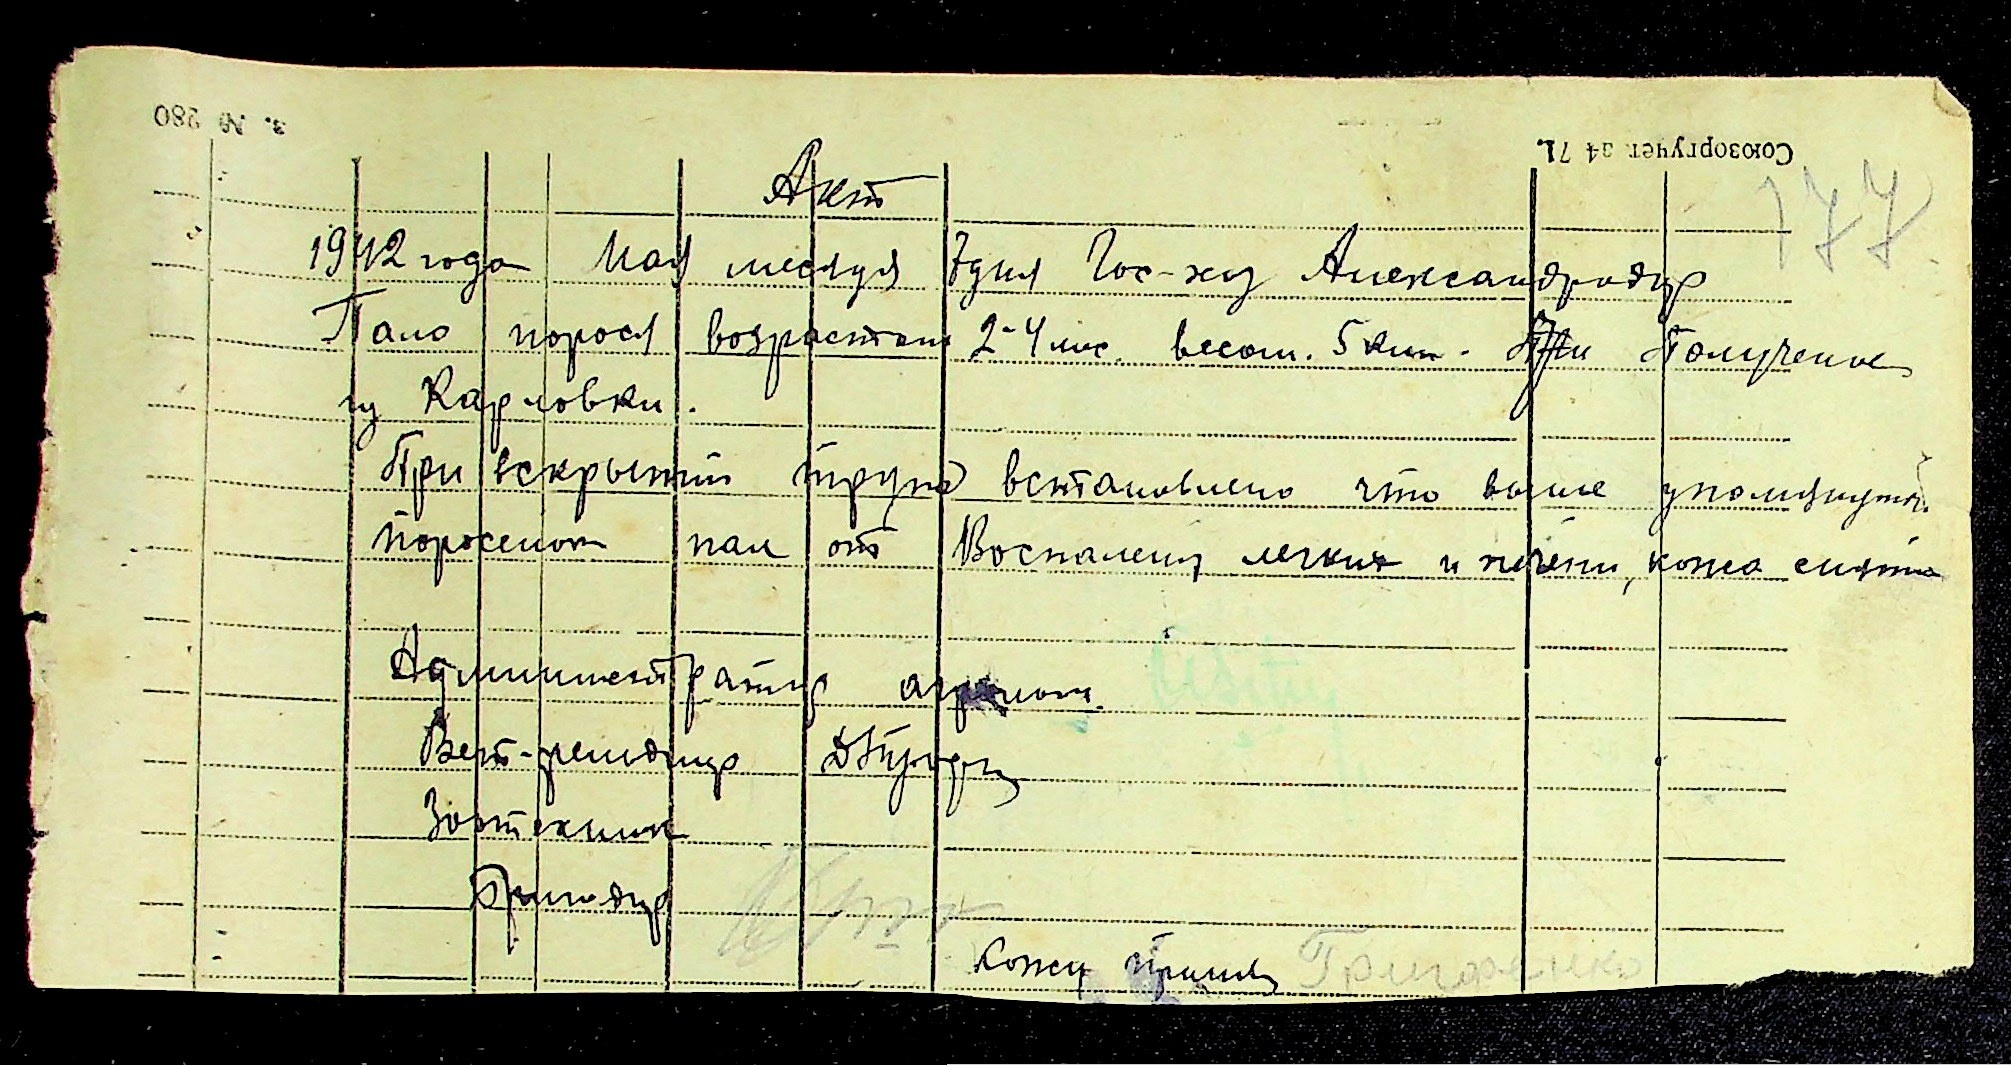 з. № 280
Союзоргучет
177
Акт
1942 года Мая месяця 7 дня Гос-ху Александродар
Пало порося возрастом 2-4 мис. весом. 5 кил. Получение
из Карловки.
При вскрытии трупа встановлено что выше упомянутый
поросенок пал от Воспаления легких и печени, кожа снята
Администратор агроном
Вет-фельдшер
Зоотехник
Бригадир
Кожу принял Григоренко